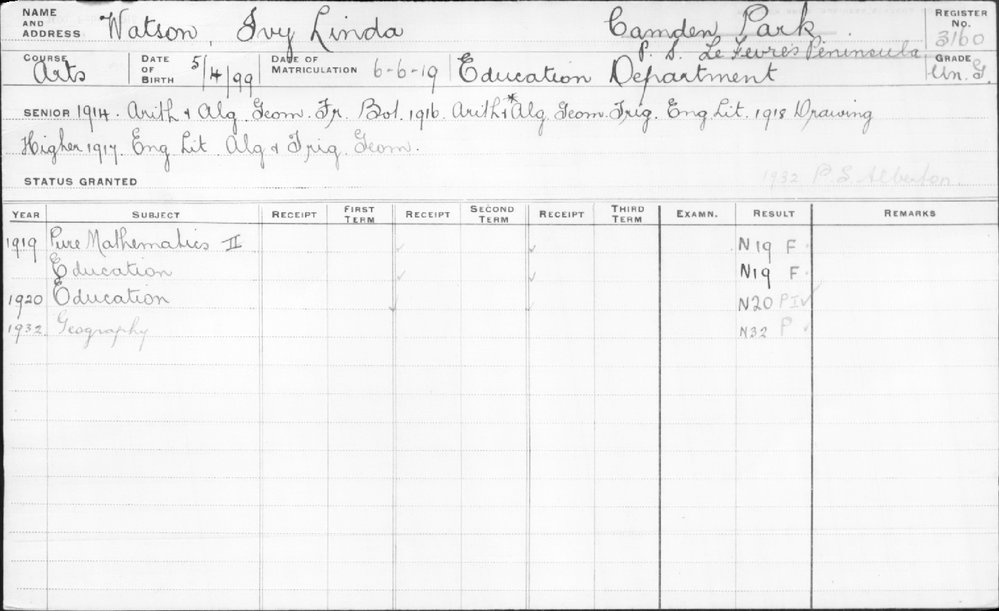 NAME AND ADDRESS Watson, Ivy Linda Camden Park REGISTER No. 3160
P. S. Le Fevre's Peninsula
COURSE Arts DATE OF BIRTH 5/4/99 DATE OF MATRICULATION 6-6-19 Education Department GRADE Un. G.
SENIOR 1914. Arith & Alg. Geom. Fr. Bot. 1916. Arith & *Alg. Geom. Trig. Eng Lit. 1918 Drawing
Higher 1917. Eng Lit. Alg & Trig. Geom.
STATUS GRANTED 1932 P.S Alberton.
YEAR SUBJECT RECEIPT FIRST TERM RECEIPT SECOND TERM RECEIPT THIRD TERM EXAMN. RESULT REMARKS
1919 Pure Mathematics II ✓ ✓ N19 F.
Education ✓ ✓ N19 F.
1920 Education ✓ ✓ N20 PII ✓
1932 Geography N32 P ✓